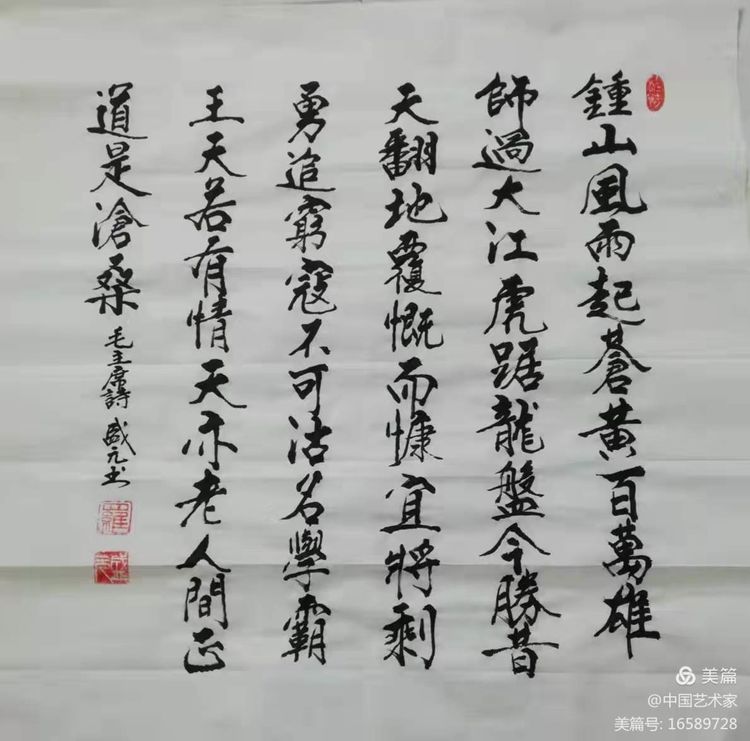 鍾山風雨起蒼黃百萬雄
師過大江虎踞龍盤今勝昔
天翻地覆慨而慷宜將剩
勇追窮寇不可沽名學霸
王天若有情天亦老人間正
道是滄桑
毛主席詩 盛元书
美篇
@中国艺术家
美篇号: 16589728